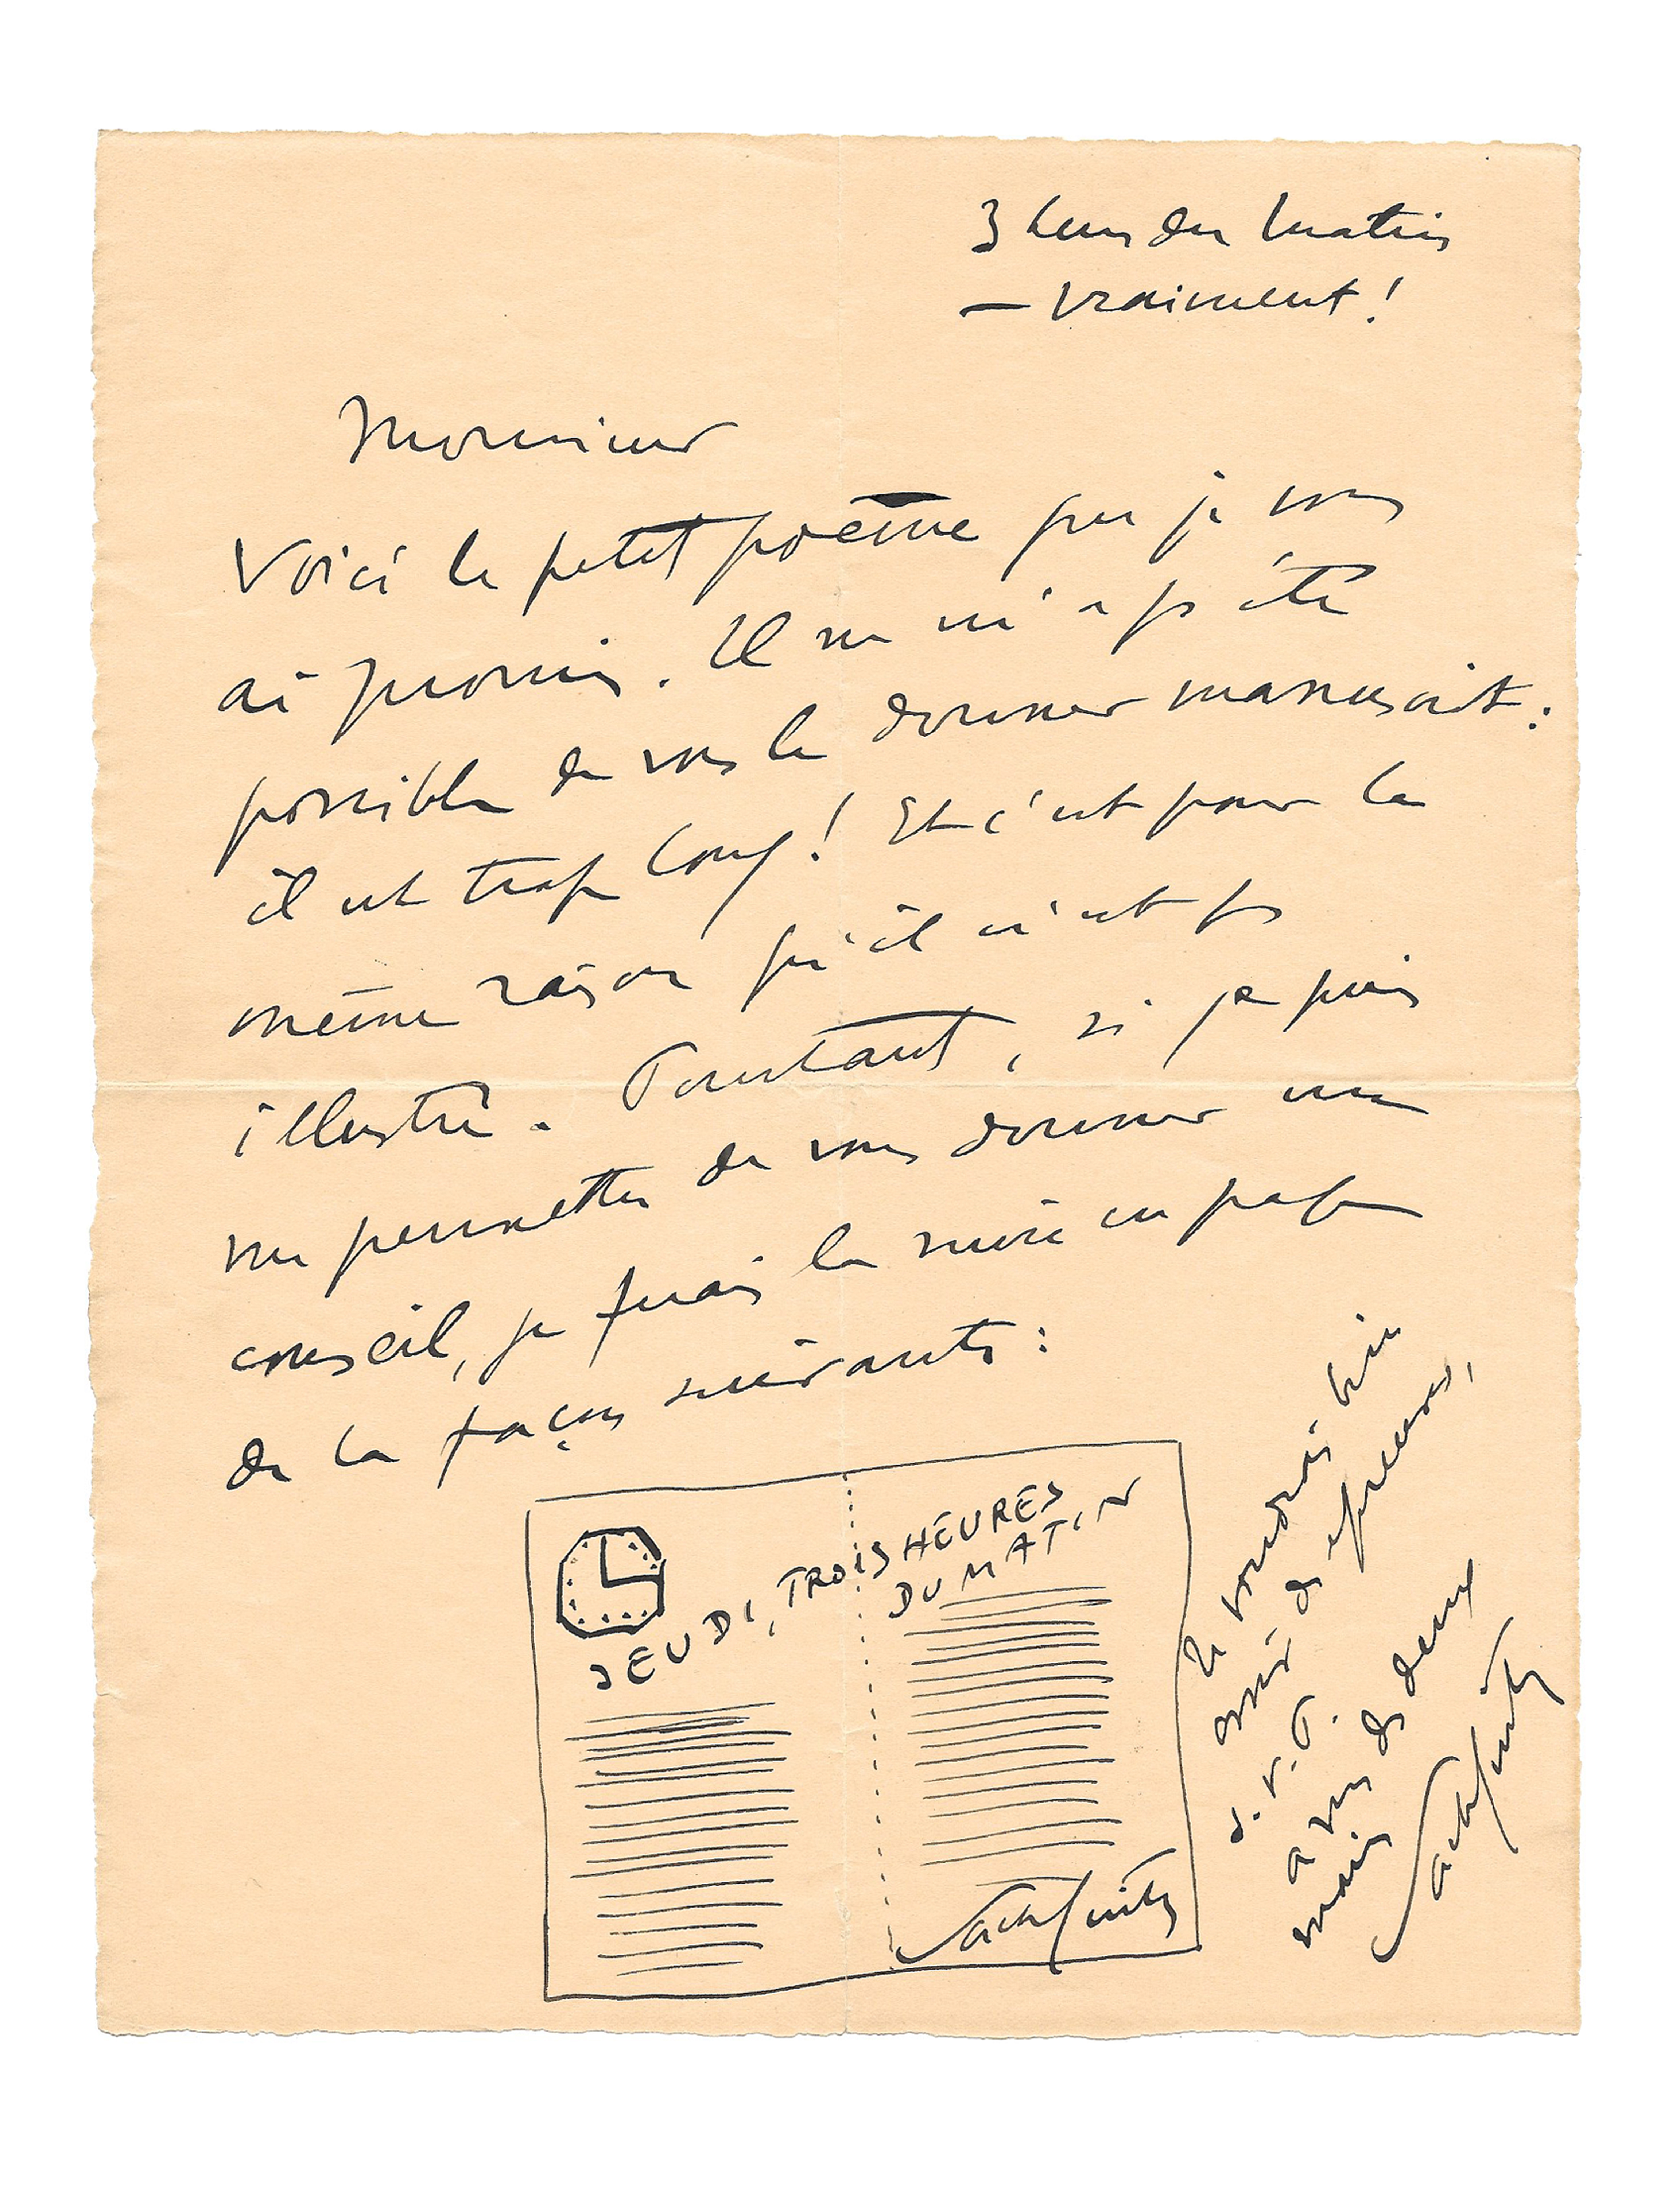 3 heures du matin
— vraiment !
Monsieur
Voici le petit poème que je vous
ai promis. Il ne m'a pas été
possible de vous le donner manuscrit :
il est trop long ! Et c'est pour la
même raison qu'il n'est pas
illustré. Pourtant, si je puis
me permettre de vous donner un
conseil, je ferais la mise en page
de la façon suivante :
JEUDI, TROIS HEURES
DU MATIN
Sacha Guitry
Je voudrais bien
avoir des épreuves,
s. v. P.
à vous des deux
mains
Sacha Guitry